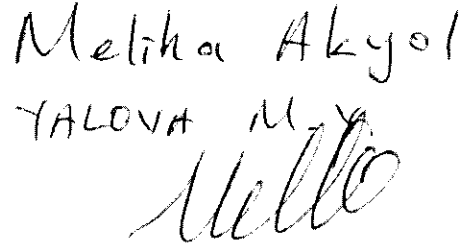 Meliha Akyol
YALOVA M.Y